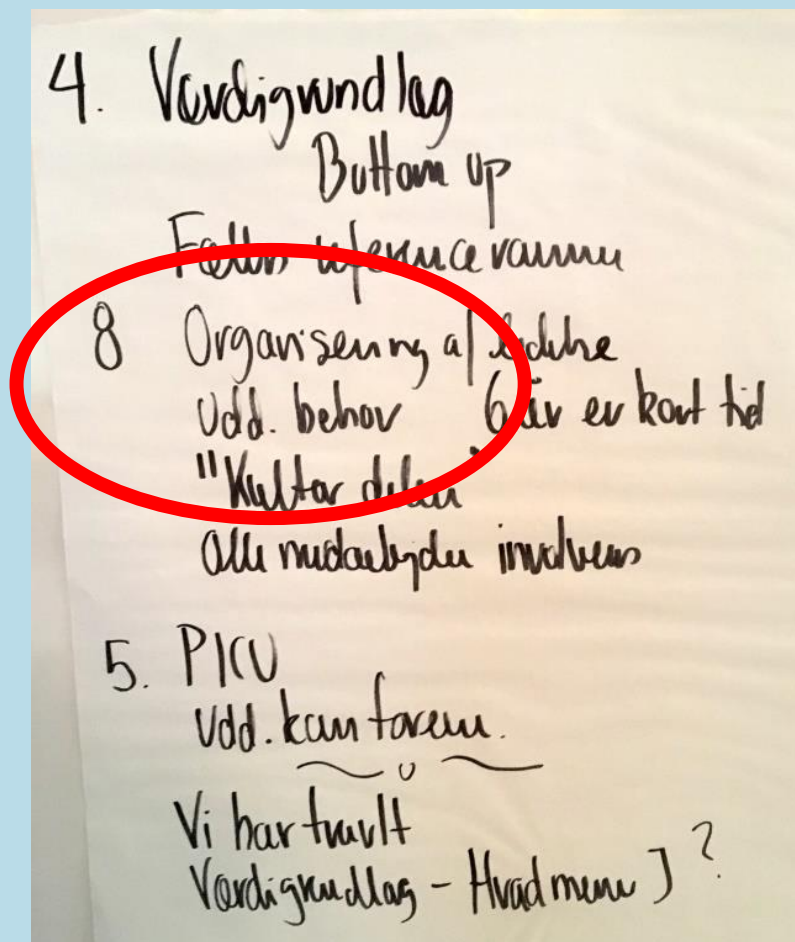 4. Værdigrundlag
Buttom up
Fælles referenceramme
8 Organisering af ledelse
Udd. behov 6 år er kort tid
"Kultur delen"
alle medarbejder involveres
5. PICU
Udd. kan forem.
Vi har travlt
Værdigrundlag - Hvad mener I ?